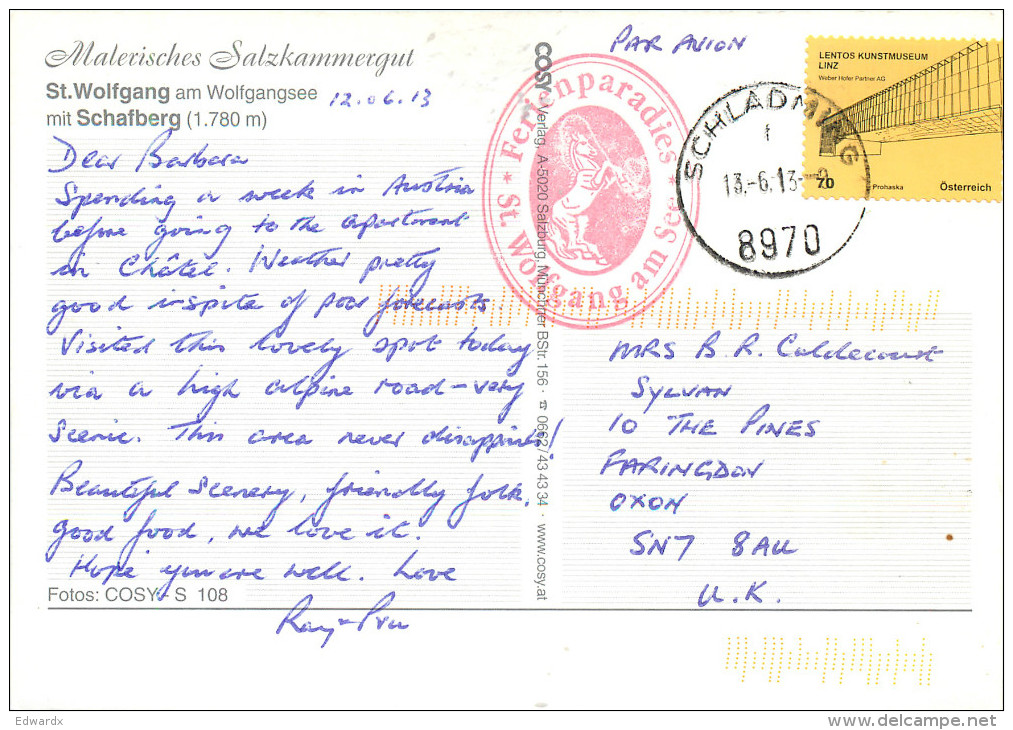 Malerisches Salzkammergut
St.Wolfgang am Wolfgangsee
mit Schafberg (1.780 m)
12.06.13
Dear Barbara
Spending a week in Austria
before going to the apartment
in Châtel. Weather pretty
good inspite of poor forecasts.
Visited this lovely spot today
via a high alpine road - very
scenic. This area never disappoints!
Beautiful scenery, friendly folk,
good food, we love it.
Hope you are well. Love
Ray + Pru
Fotos: COSY - S 108
COSY - Verlag, A-5020 Salzburg, Münchner BStr. 156 · ☎ 0662/43 43 34 · www.cosy.at
* Ferienparadies *
St. Wolfgang am See
PAR AVION
SCHLADMING
1
13.-6.13-
8970
LENTOS KUNSTMUSEUM
LINZ
Weber Hofer Partner AG
70
Prohaska
Österreich
MRS B. R. Caldecourt
SYLVAN
10 THE PINES
FARINGDON
OXON
SN7 8AU
U.K.
Edwardx
delcampe.net